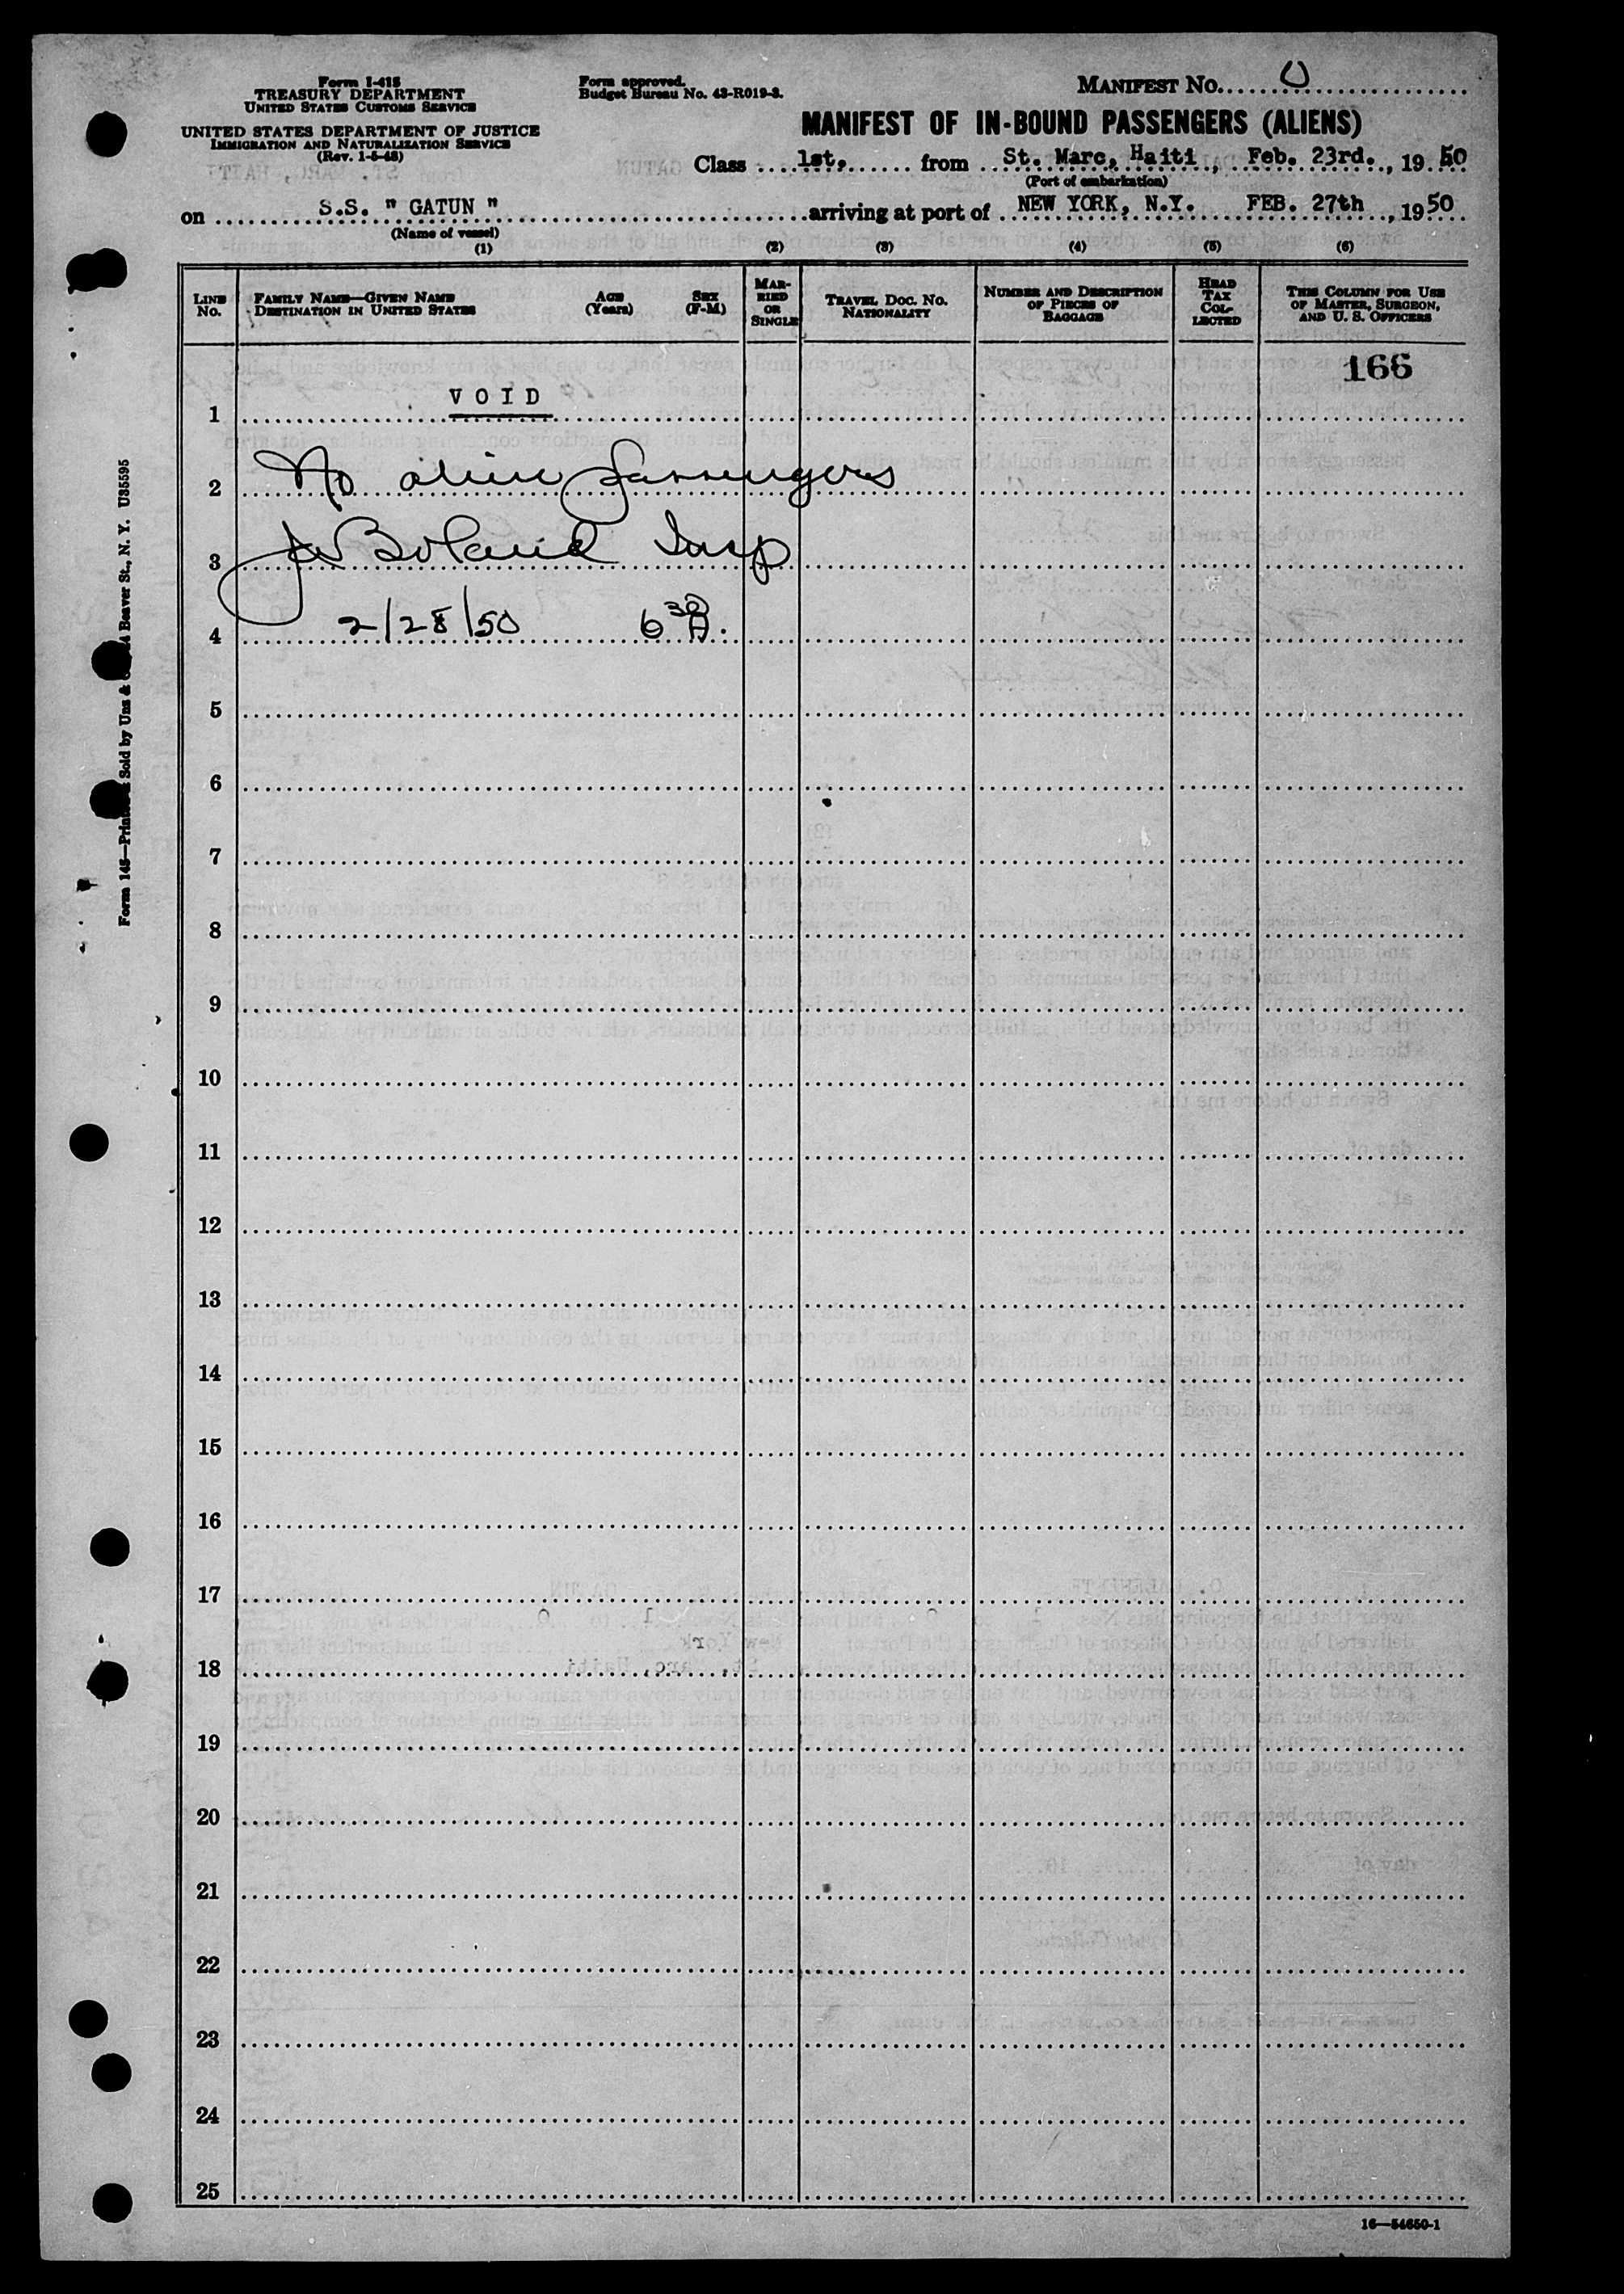 Form I-415
TREASURY DEPARTMENT
UNITED STATES CUSTOMS SERVICE
UNITED STATES DEPARTMENT OF JUSTICE
IMMIGRATION AND NATURALIZATION SERVICE
(Rev. 1-5-48)
Form approved.
Budget Bureau No. 43-R019-3.
MANIFEST No. 0
MANIFEST OF IN-BOUND PASSENGERS (ALIENS)
Class 1st. from St. Marc, Haiti, Feb. 23rd., 19 50
(Port of embarkation)
on S.S. " GATUN " arriving at port of NEW YORK, N.Y. FEB. 27th, 19 50
(Name of vessel)
(1) (2) (3) (4) (5) (6)
LINE No.
FAMILY NAME—GIVEN NAME AGE (Years) SEX (F-M)
DESTINATION IN UNITED STATES
MARRIED OR SINGLE
TRAVEL DOC. No.
NATIONALITY
NUMBER AND DESCRIPTION
OF PIECES OF
BAGGAGE
HEAD
TAX
COL-
LECTED
THIS COLUMN FOR USE
OF MASTER, SURGEON,
AND U. S. OFFICERS
166
1 VOID
2 No alien passengers
3 Boland Insp
4 2/28/50 6 30 A.
5
6
7
8
9
10
11
12
13
14
15
16
17
18
19
20
21
22
23
24
25
16—54650-1
Sold by Uns &
Beaver St., N. Y. U35595